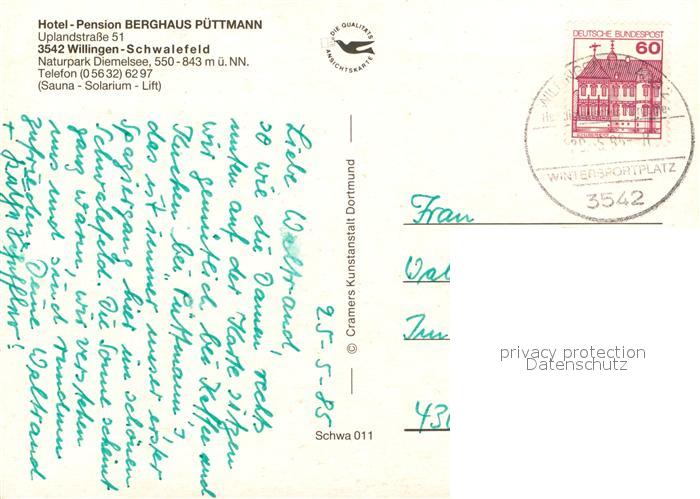 Hotel-Pension BERGHAUS PÜTTMANN
Uplandstraße 51
3542 Willingen-Schwalefeld
Naturpark Diemelsee, 550-843 m ü. NN.
Telefon (0 56 32) 62 97
(Sauna - Solarium - Lift)
DIE QUALITÄTS
ANSICHTSKARTE
DEUTSCHE BUNDESPOST
60
WINTERSPORTPLATZ
3542
25-5-85
Liebe Waltraud,
so wie die Damen, rechts
unten auf der Karte sitzen
wir gemütlich bei Kaffee und
Kuchen bei "Püttmann",
das ist immer unser erster
Spaziergang hier im schönen
Schwalefeld. Die Sonne scheint
ganz warm, wir verstehen
uns und sind rundum
zufrieden. Deine Waltraud
+ Ralf
© Cramers Kunstanstalt Dortmund
Schwa 011
Frau
Wal
Im
430
privacy protection
Datenschutz